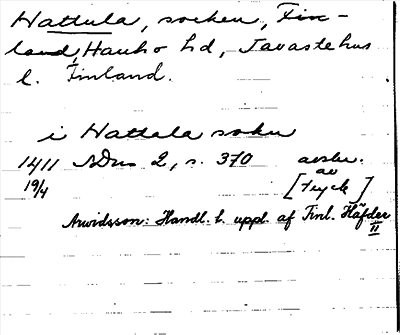 Hattula, socken, Fin-
land, Hauho hd, Tavastehus
l. Finland.
i Hattala sokn
1411 SDns 2, s. 370 avskr.
19/4 av
[tryck]
Arwidsson: Handl. t. uppl. af Finl. Häfder
II